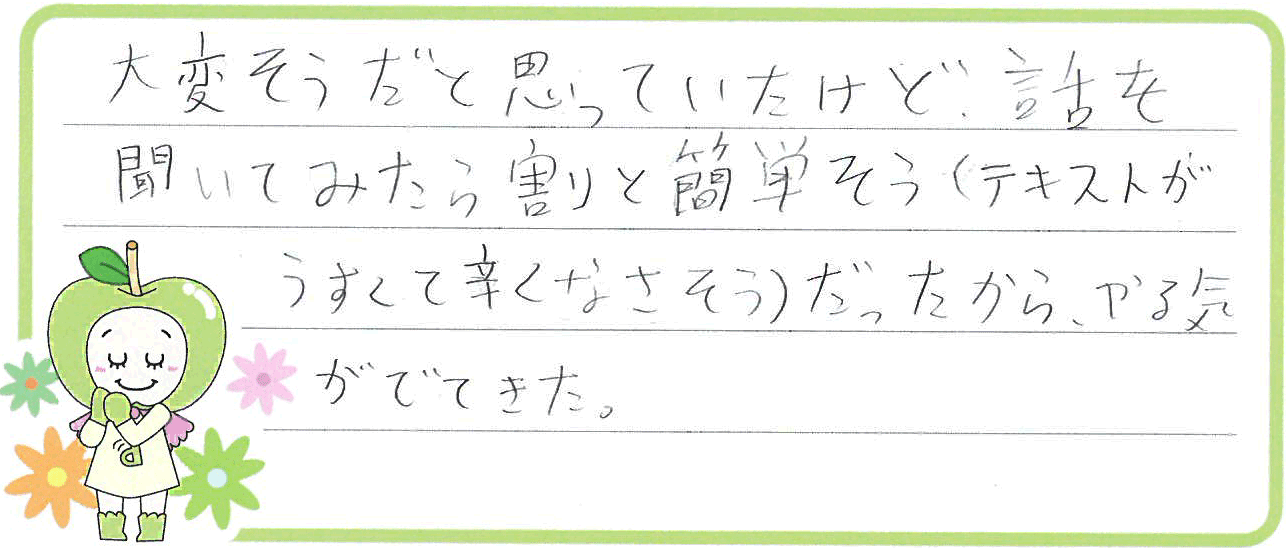 大変そうだと思っていたけど、話を
聞いてみたら割りと簡単そう(テキストが
うすくて辛くなさそう)だったから、やる気
がでてきた。